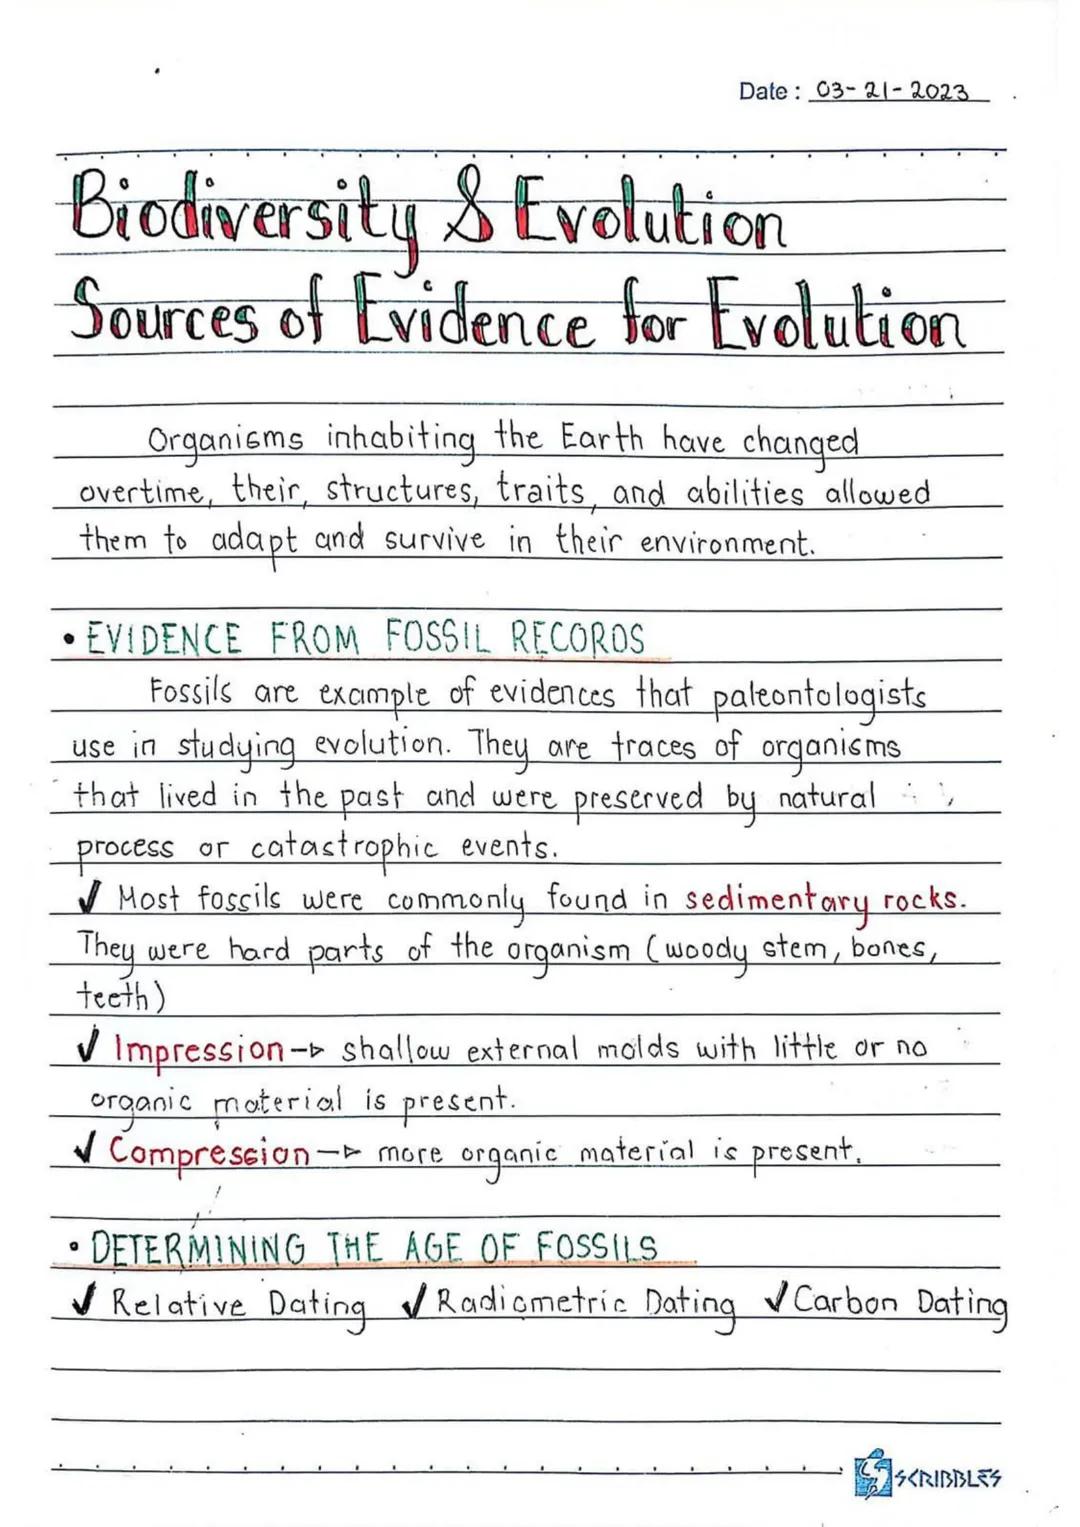 Date : 03-21-2023
Biodiversity & Evolution
Sources of Evidence for Evolution
Organisms inhabiting the Earth have changed
overtime, their, structures, traits, and abilities allowed
them to adapt and survive in their environment.
• EVIDENCE FROM FOSSIL RECORDS
Fossils are example of evidences that paleontologists
use in studying evolution. They are traces of organisms
that lived in the past and were preserved by natural
process or catastrophic events.
✓ Most fossils were commonly found in sedimentary rocks.
They were hard parts of the organism (woody stem, bones,
teeth)
✓ Impression -▷ shallow external molds with little or no
organic material is present.
✓ Compression -▷ more organic material is present.
• DETERMINING THE AGE OF FOSSILS
✓ Relative Dating ✓ Radiometric Dating ✓ Carbon Dating
SCRIBBLES